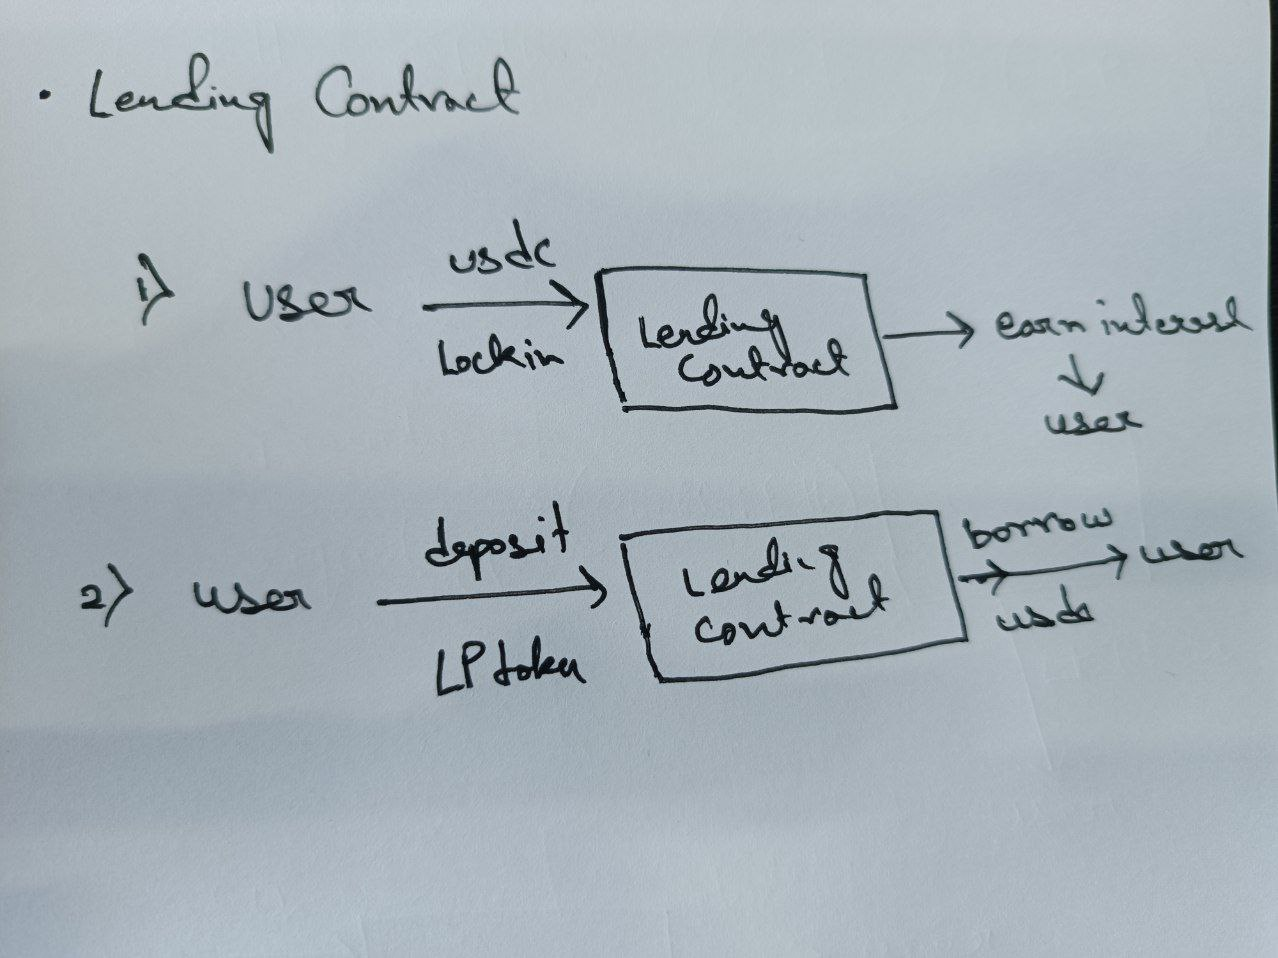 • Lending Contract
1) User
usdc
Lockin
Lending
Contract
earn interest
user
2) user
deposit
LP token
Lending
contract
borrow
usdc
user